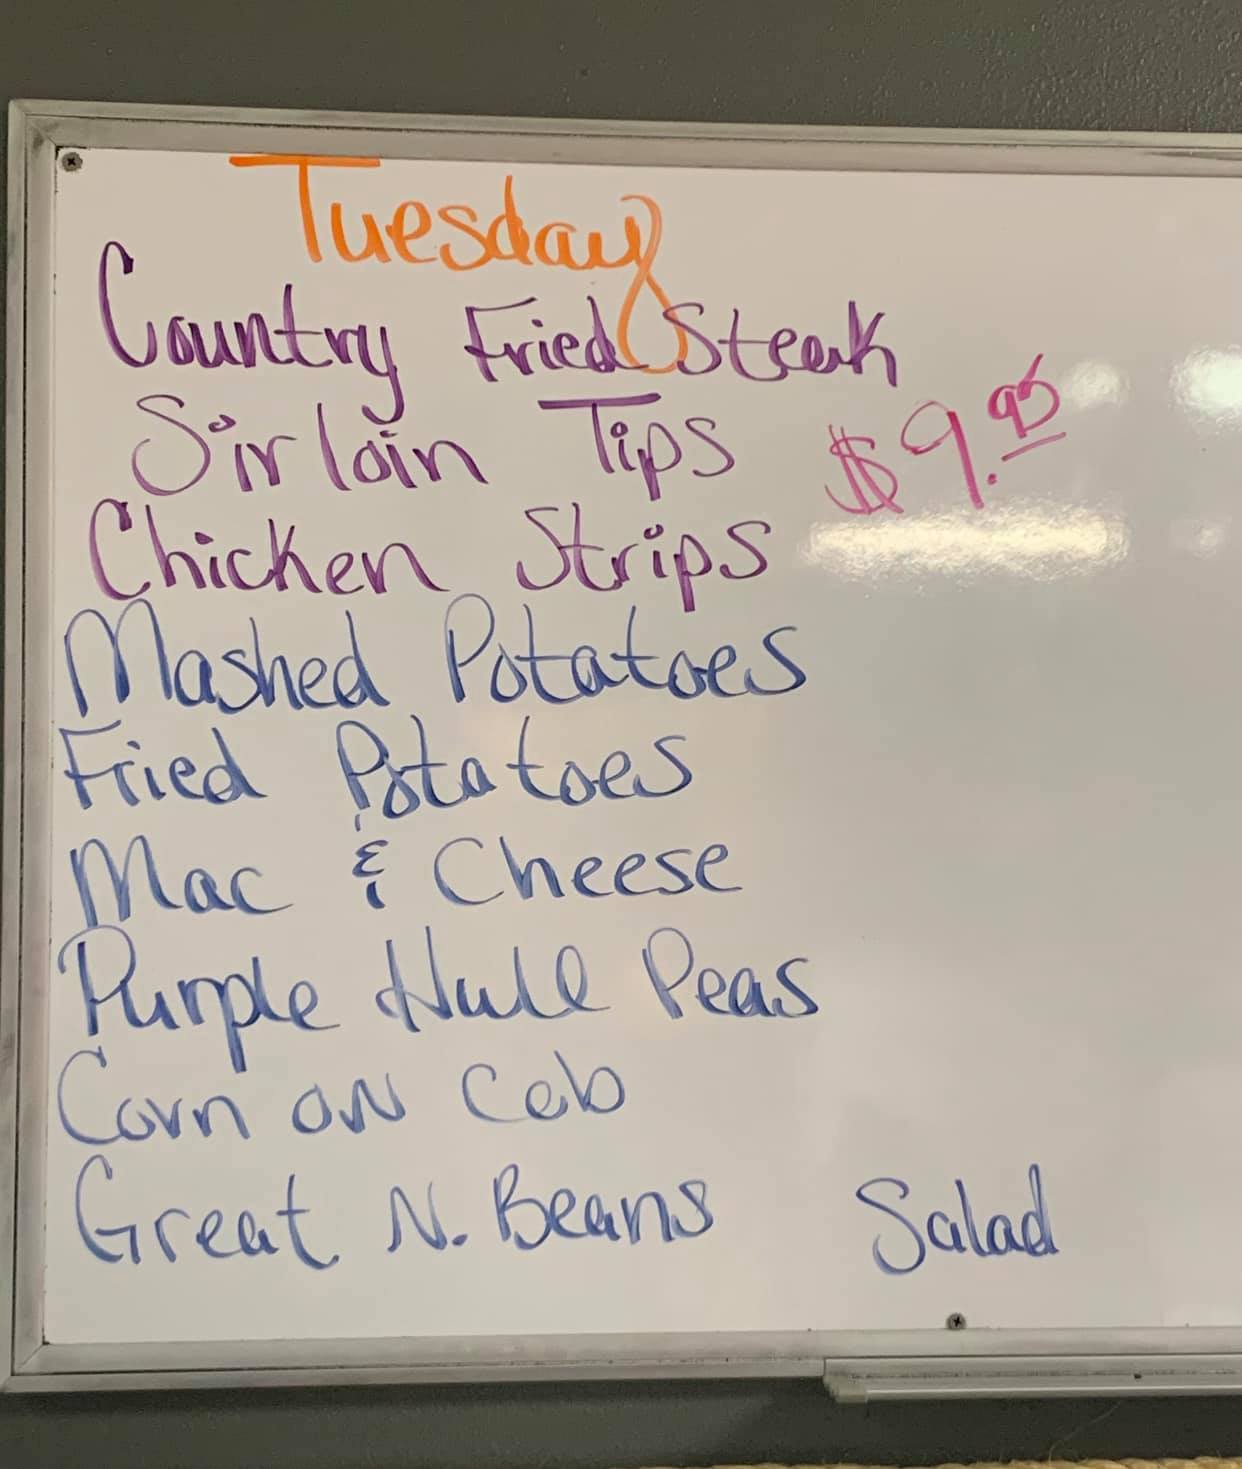 Tuesday
Country Fried Steak
Sirloin Tips $9.95
Chicken Strips
Mashed Potatoes
Fried Potatoes
Mac & Cheese
Purple Hull Peas
Corn on Cob
Great N. Beans Salad